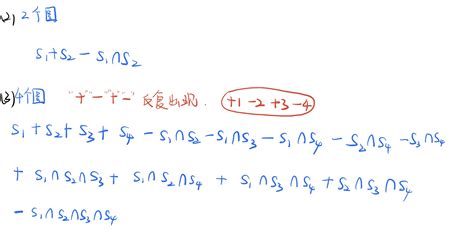 (2) 2个圆
S₁+S₂-S₁∩S₂
(3) 4个圆 "+""-""+""-" 反复出现. +1-2+3-4
S₁+S₂+S₃+S₄-S₁∩S₂-S₁∩S₃-S₁∩S₄-S₂∩S₄-S₃∩S₄
+S₁∩S₂∩S₃+S₁∩S₂∩S₄+S₁∩S₃∩S₄+S₂∩S₃∩S₄
-S₁∩S₂∩S₃∩S₄